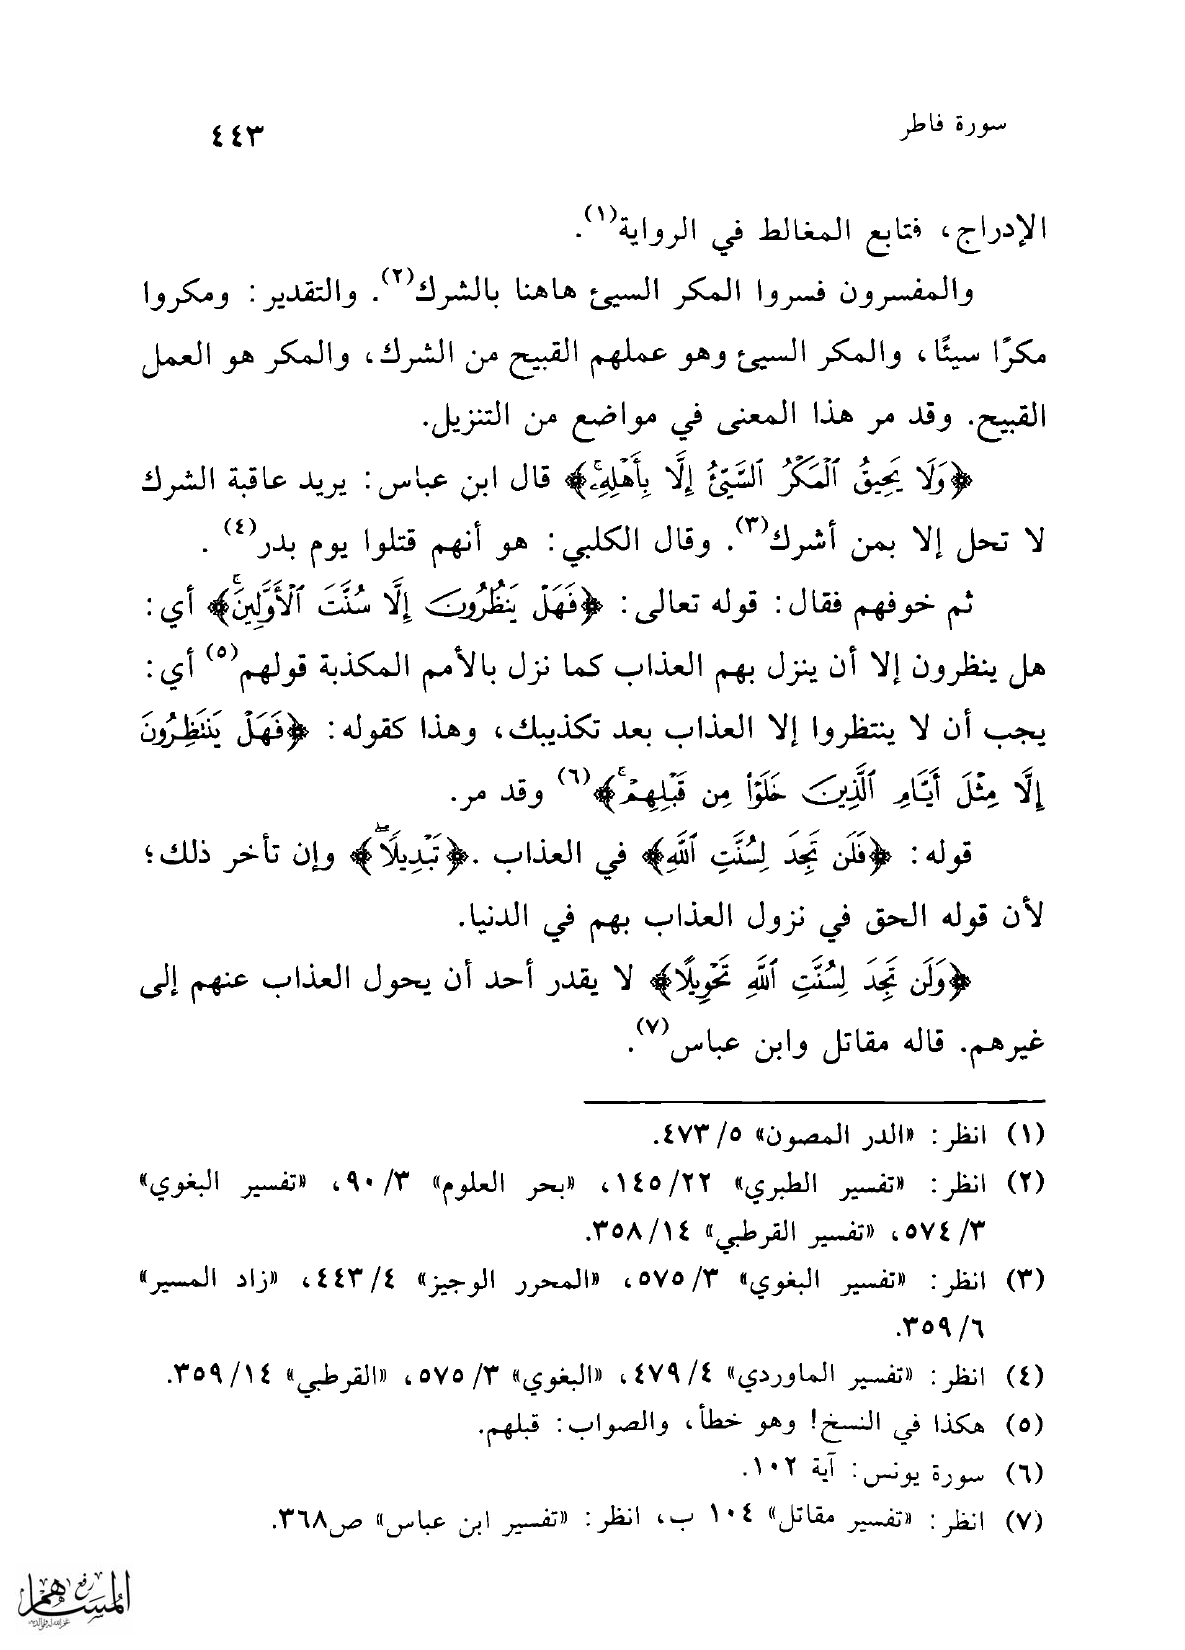 سورة فاطر
٤٤٣
الإدراج، فتابع المغالط في الرواية(١).
والمفسرون فسروا المكر السيئ هاهنا بالشرك(٢). والتقدير: ومكروا
مكرًا سيئًا، والمكر السيئ وهو عملهم القبيح من الشرك، والمكر هو العمل
القبيح. وقد مر هذا المعنى في مواضع من التنزيل.
﴿وَلَا يَحِيقُ ٱلْمَكْرُ ٱلسَّيِّئُ إِلَّا بِأَهْلِهِۦۚ﴾ قال ابن عباس: يريد عاقبة الشرك
لا تحل إلا بمن أشرك(٣). وقال الكلبي: هو أنهم قتلوا يوم بدر(٤) .
ثم خوفهم فقال: قوله تعالى: ﴿فَهَلْ يَنظُرُونَ إِلَّا سُنَّتَ ٱلْأَوَّلِينَۚ﴾ أي:
هل ينظرون إلا أن ينزل بهم العذاب كما نزل بالأمم المكذبة قولهم(٥) أي:
يجب أن لا ينتظروا إلا العذاب بعد تكذيبك، وهذا كقوله: ﴿فَهَلْ يَنتَظِرُونَ
إِلَّا مِثْلَ أَيَّامِ ٱلَّذِينَ خَلَوْا۟ مِن قَبْلِهِمْۚ﴾(٦) وقد مر.
قوله: ﴿فَلَن تَجِدَ لِسُنَّتِ ٱللَّهِ﴾ في العذاب .﴿تَبْدِيلًاۖ﴾ وإن تأخر ذلك؛
لأن قوله الحق في نزول العذاب بهم في الدنيا.
﴿وَلَن تَجِدَ لِسُنَّتِ ٱللَّهِ تَحْوِيلًا﴾ لا يقدر أحد أن يحول العذاب عنهم إلى
غيرهم. قاله مقاتل وابن عباس(٧).
(١) انظر: «الدر المصون» ٥/ ٤٧٣.
(٢) انظر: «تفسير الطبري» ٢٢/ ١٤٥، «بحر العلوم» ٣/ ٩٠، «تفسير البغوي»
٣/ ٥٧٤، «تفسير القرطبي» ١٤/ ٣٥٨.
(٣) انظر: «تفسير البغوي» ٣/ ٥٧٥، «المحرر الوجيز» ٤/ ٤٤٣، «زاد المسير»
٦/ ٣٥٩.
(٤) انظر: «تفسير الماوردي» ٤/ ٤٧٩، «البغوي» ٣/ ٥٧٥، «القرطبي» ١٤/ ٣٥٩.
(٥) هكذا في النسخ! وهو خطأ، والصواب: قبلهم.
(٦) سورة يونس: آية ١٠٢.
(٧) انظر: «تفسير مقاتل» ١٠٤ ب، انظر: «تفسير ابن عباس» ص٣٦٨.
رفع
المساهم